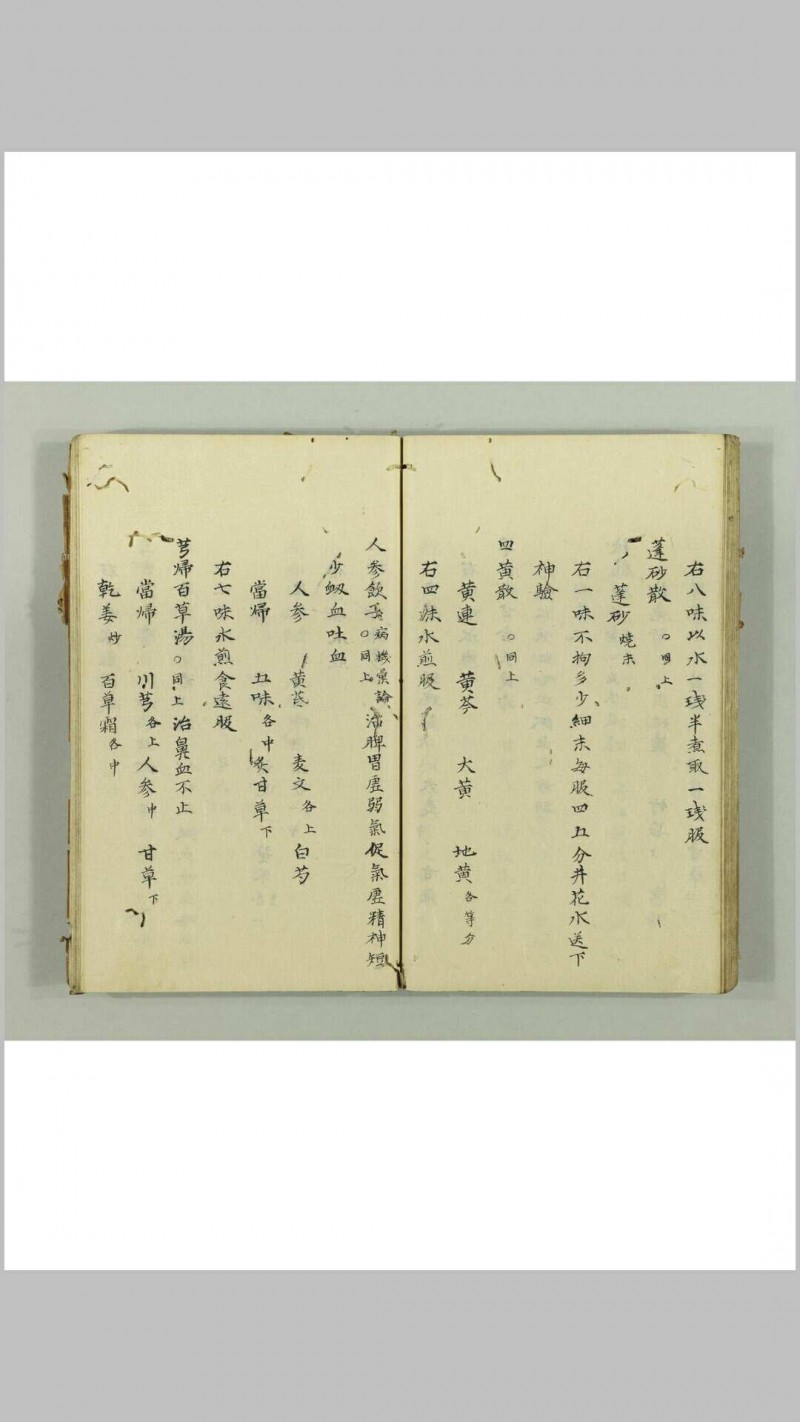 右八味以水一琖半煮取一琖服
蓬砂散 ○同上
蓬砂 燒末
右一味不拘多少細末每服四五分井花水送下
神驗
四黄散 ○同上
黄連 黄芩 大黄 地黄 各等分
右四味水煎服
人参飲子 病機彙論 ○同上 治脾胃虚弱氣促氣虚精神短
少衂血吐血
人参 黄芪 麦文 各上 白芍
當帰 五味 各中 炙甘草 下
右七味水煎食遠服
芎帰百草湯 ○同上 治鼻血不止
當帰 川芎 各上 人参 中 甘草 下
乾姜 炒 百草霜 各中